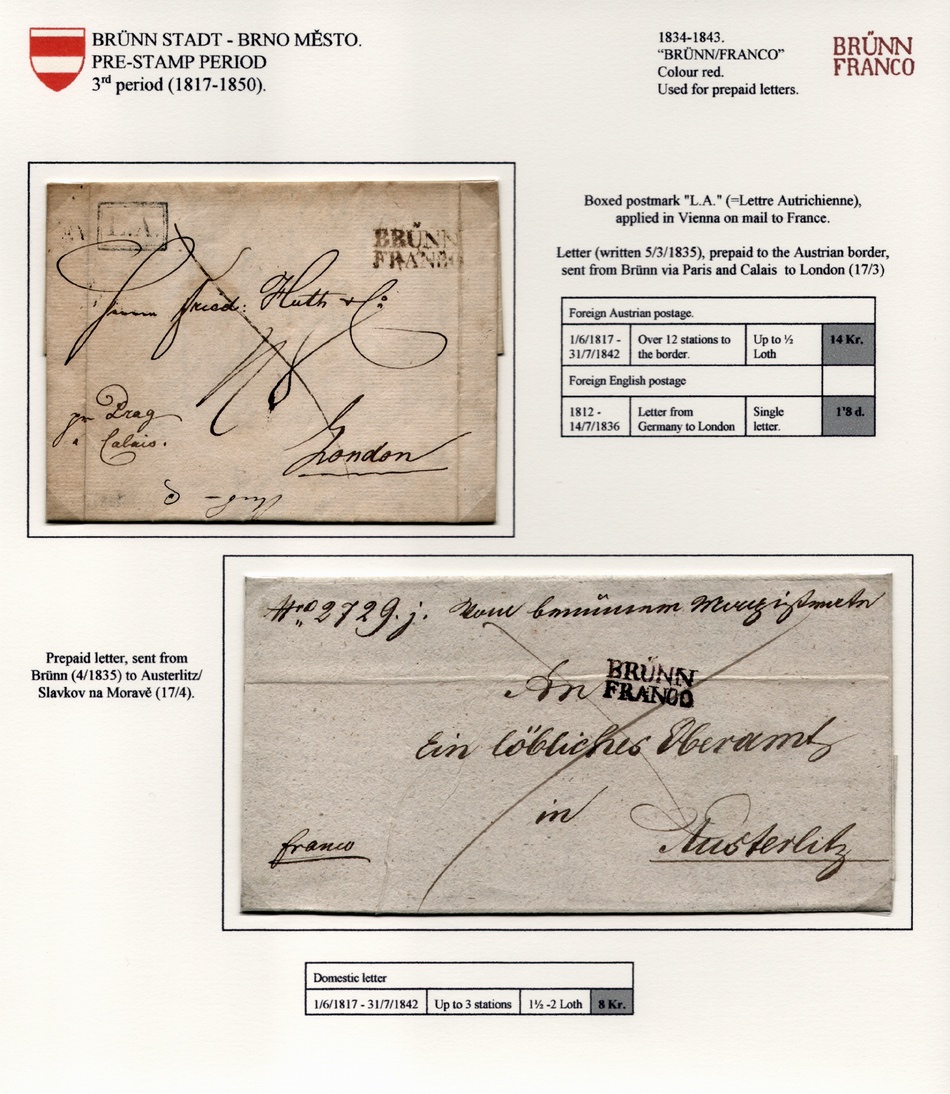 BRÜNN STADT - BRNO MĚSTO.
PRE-STAMP PERIOD
3rd period (1817-1850).
1834-1843.
“BRÜNN/FRANCO”
Colour red.
Used for prepaid letters.
BRÜNN
FRANCO
L.A.
BRÜNN
FRANCO
Herrn Fried: Huth & Co
1/8
pr Prag
a Calais.
London
Boxed postmark "L.A." (=Lettre Autrichienne),
applied in Vienna on mail to France.
Letter (written 5/3/1835), prepaid to the Austrian border,
sent from Brünn via Paris and Calais to London (17/3)
Foreign Austrian postage.
1/6/1817 - 31/7/1842 Over 12 stations to the border. Up to ½ Loth 14 Kr.
Foreign English postage
1812 - 14/7/1836 Letter from Germany to London Single letter. 1'8 d.
Prepaid letter, sent from
Brünn (4/1835) to Austerlitz/
Slavkov na Moravě (17/4).
Nro 2729. j. Vom
BRÜNN
FRANCO
An
Ein löbliches Oberamt
in
franco
Austerlitz
Domestic letter
1/6/1817 - 31/7/1842 Up to 3 stations 1½ -2 Loth 8 Kr.